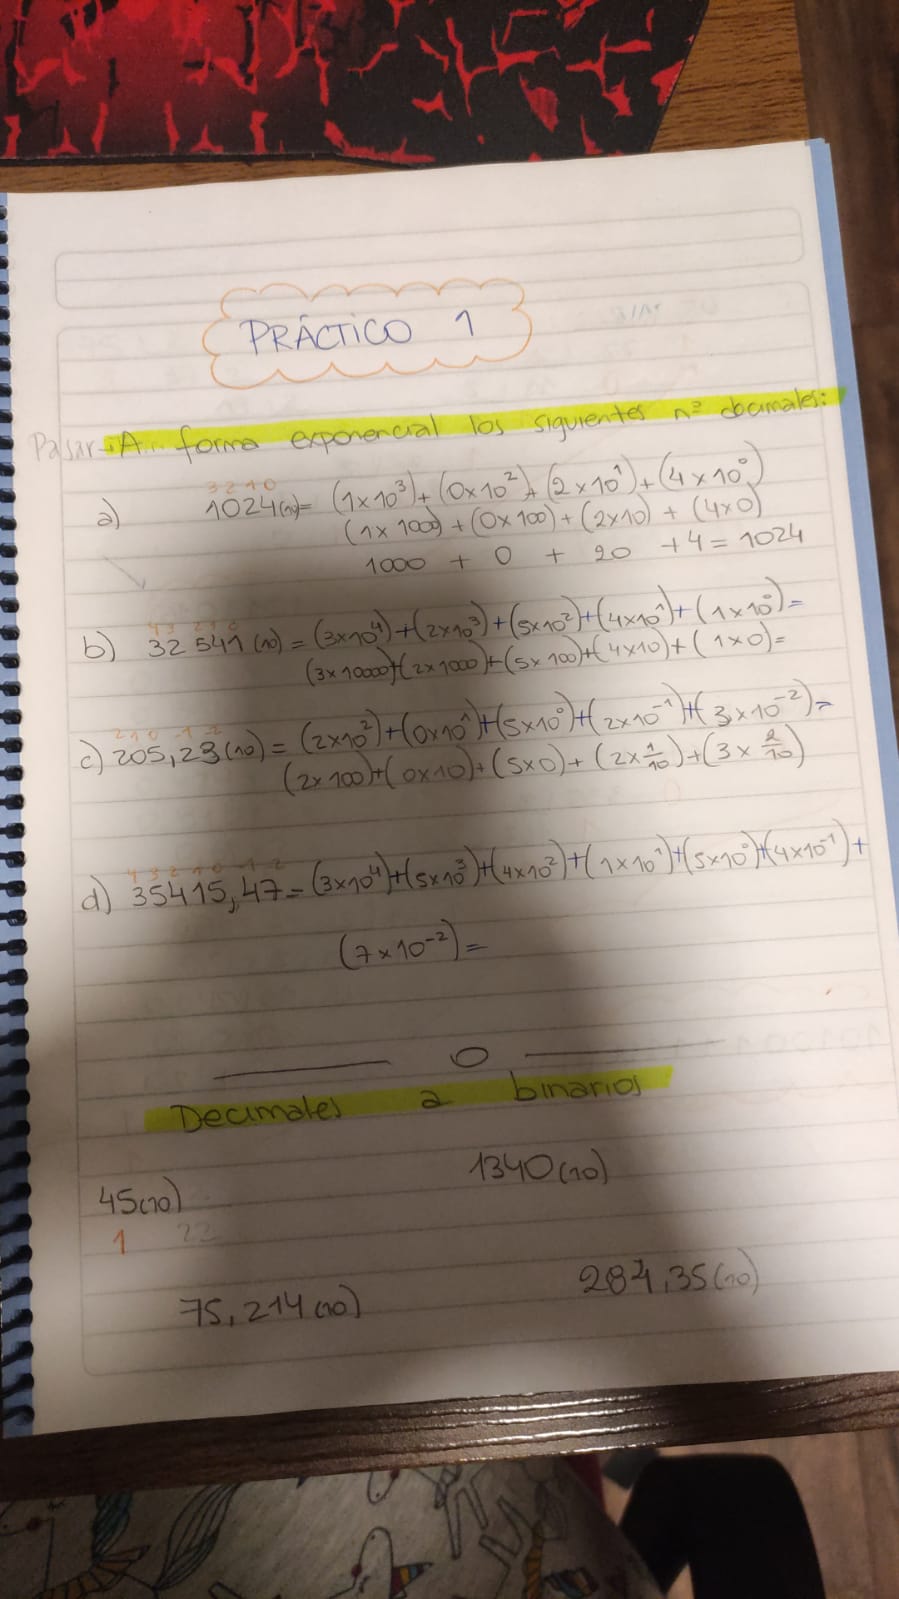 PRÁCTICO 1
Pasar A forma exponencial los siguientes nº decimales:
3 2 1 0
a) 1024(10)= (1x10³)+(0x10²)+(2x10¹)+(4x10⁰)
(1x1000)+(0x100)+(2x10)+(4x0)
1000 + 0 + 20 +4=1024
4 3 2 1 0
b) 32541(10)=(3x10⁴)+(2x10³)+(5x10²)+(4x10¹)+(1x10⁰)=
(3x10000)+(2x1000)+(5x100)+(4x10)+(1x0)=
2 1 0 -1 -2
c) 205,23(10)=(2x10²)+(0x10¹)+(5x10⁰)+(2x10⁻¹)+(3x10⁻²)=
(2x100)+(0x10)+(5x0)+(2x1/10)+(3x2/10)
4 3 2 1 0 -1 -2
d) 35415,47=(3x10⁴)+(5x10³)+(4x10²)+(1x10¹)+(5x10⁰)+(4x10⁻¹)+
(7x10⁻²)=
Decimales a binarios
45(10) 1340(10)
1 22
75,214(10) 284,35(10)